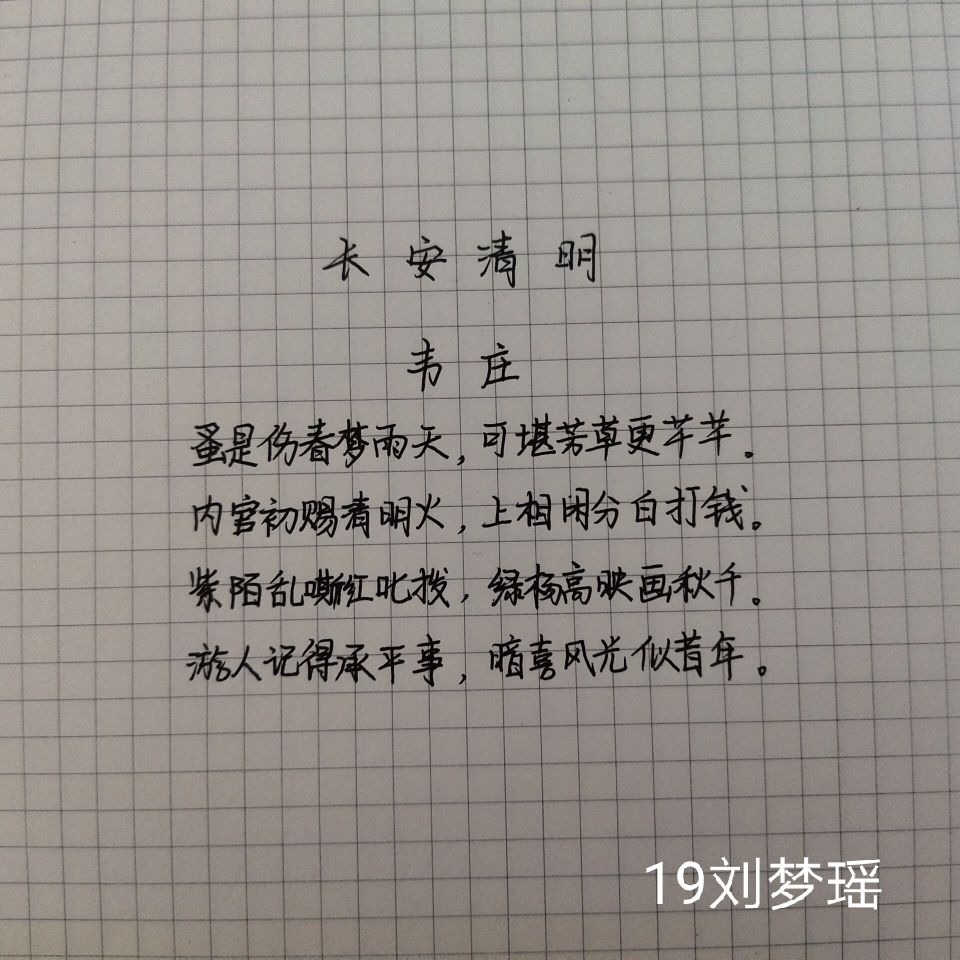 长安清明
韦庄
蚤是伤春梦雨天,可堪芳草更芊芊。
内官初赐清明火,上相闲分白打钱。
紫陌乱嘶红叱拨,绿杨高映画秋千。
游人记得承平事,暗喜风光似昔年。
19刘梦瑶